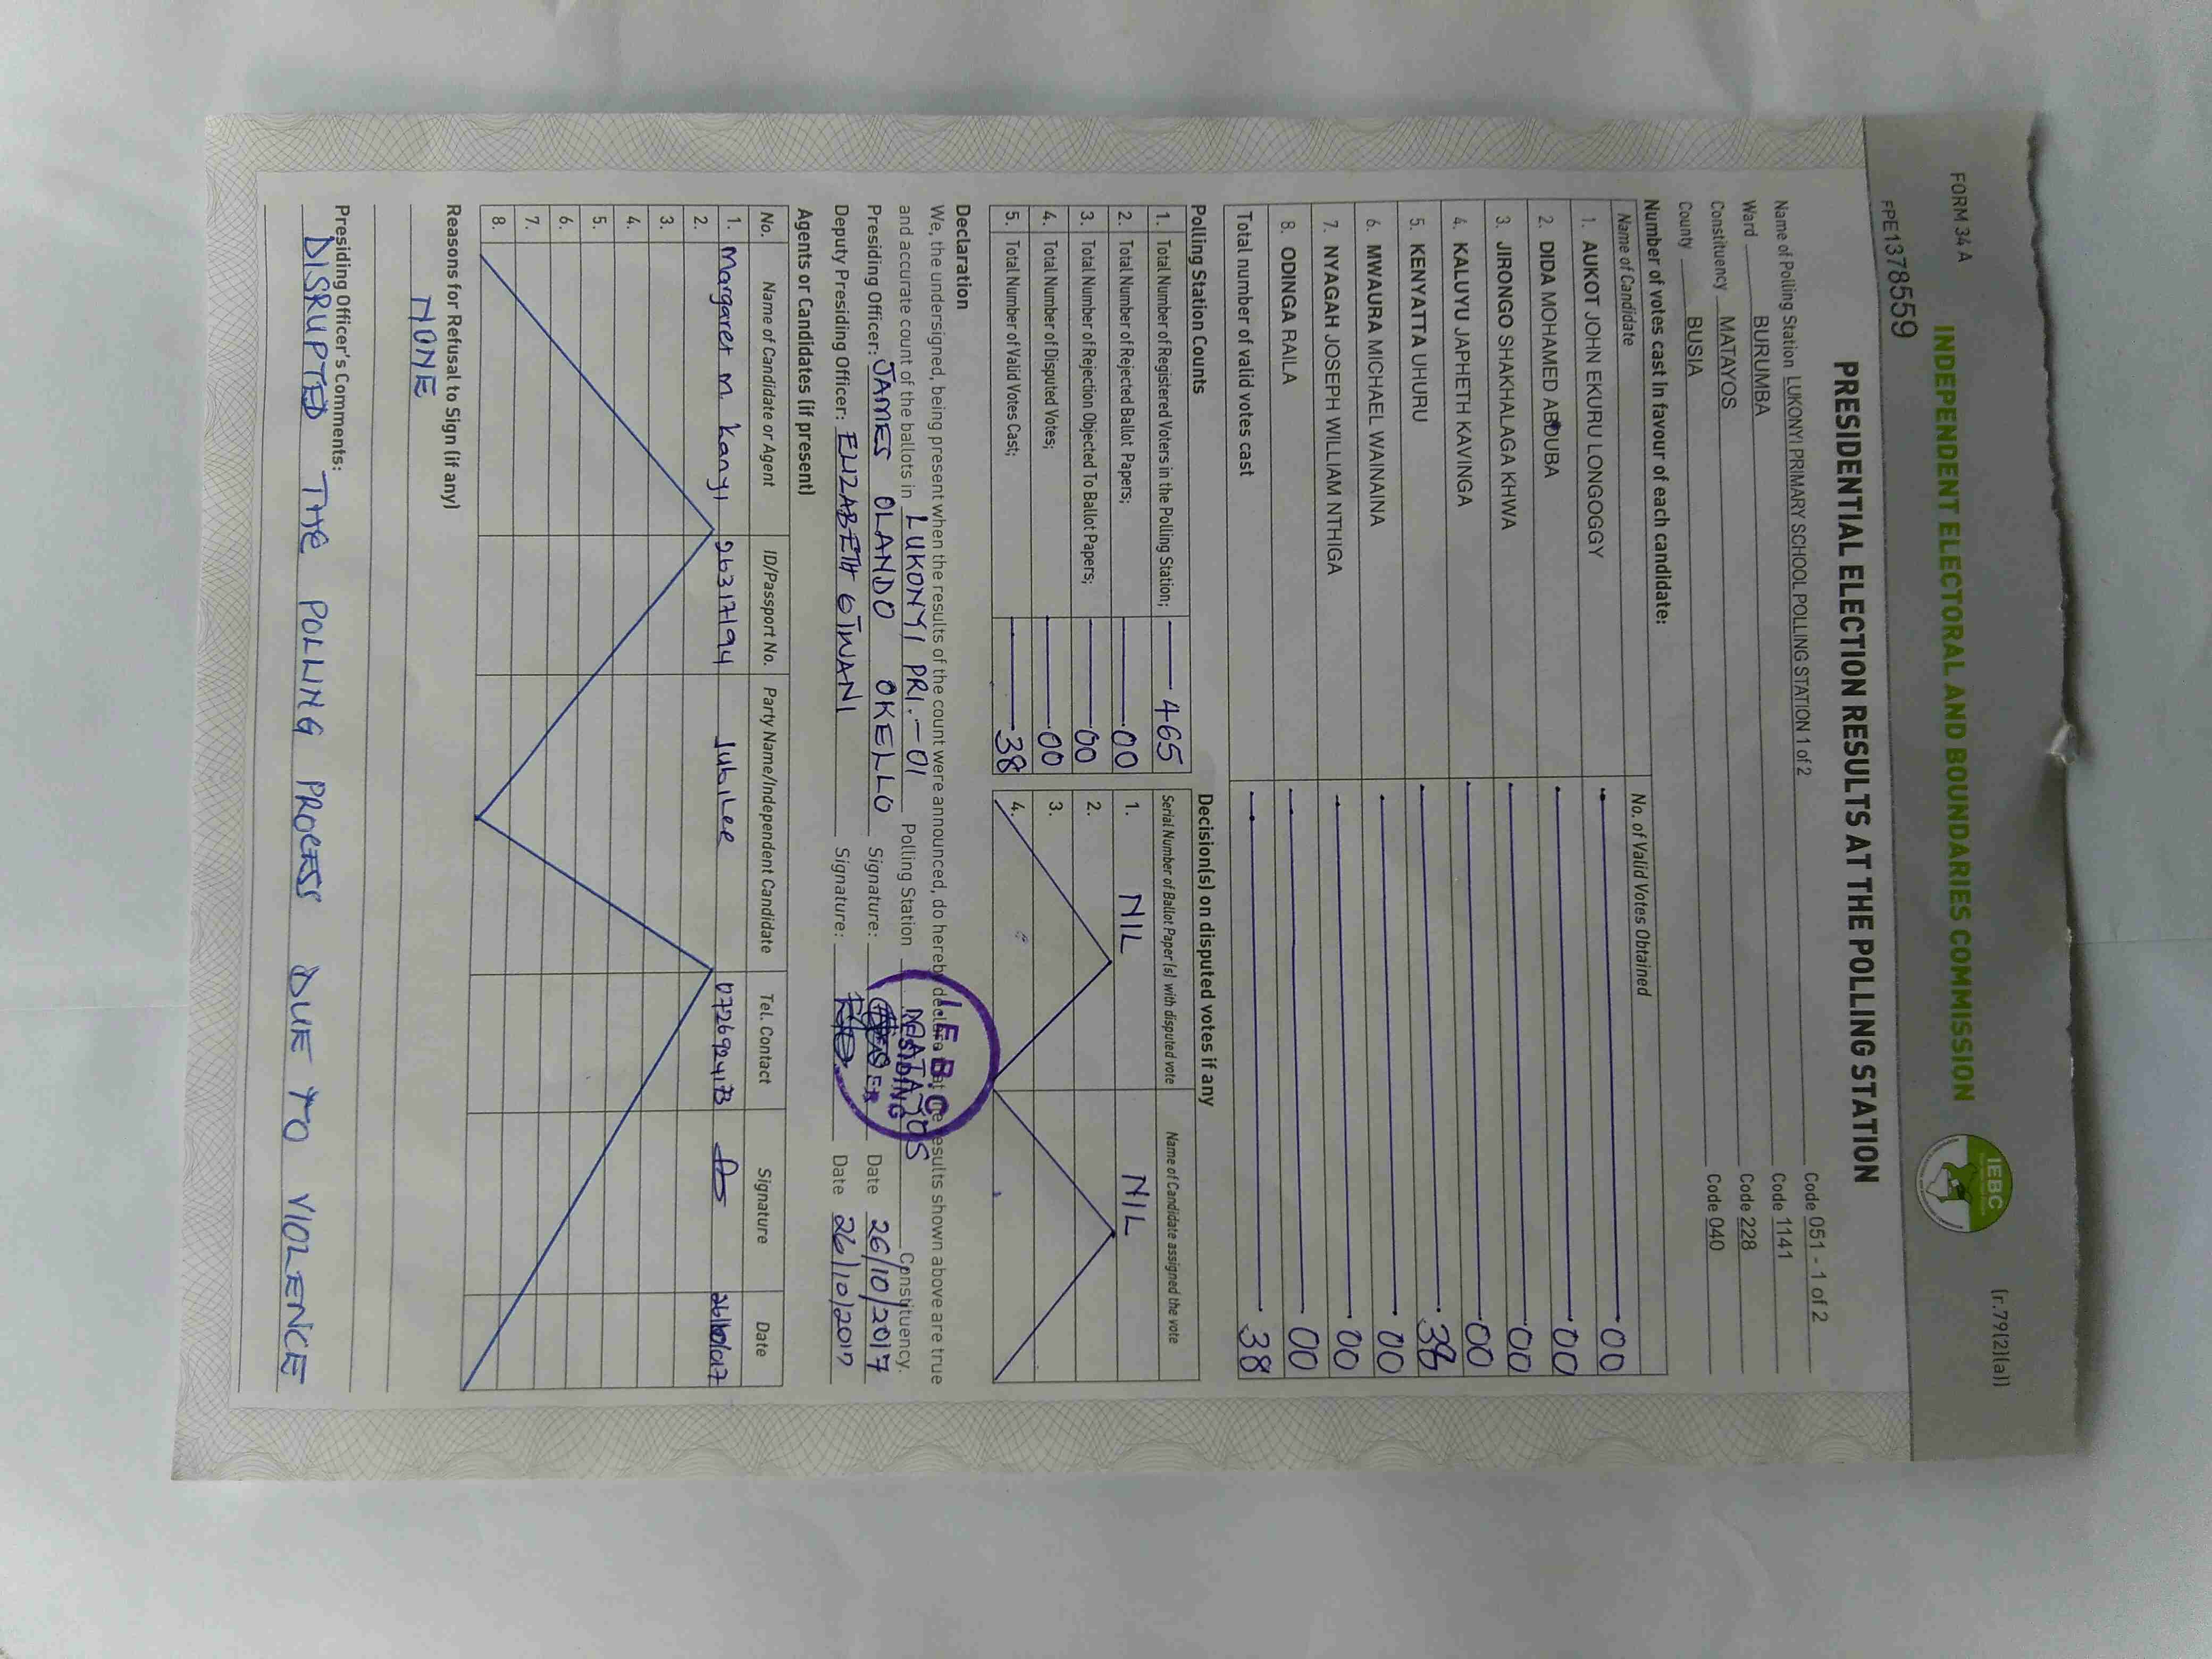 FORM 34 A
(r.79(2)(a))
INDEPENDENT ELECTORAL AND BOUNDARIES COMMISSION
IEBC
FPE1378559
PRESIDENTIAL ELECTION RESULTS AT THE POLLING STATION
Name of Polling Station LUKONYI PRIMARY SCHOOL POLLING STATION 1 of 2 Code 051 - 1 of 2
Ward BURUMBA Code 1141
Constituency MATAYOS Code 228
County BUSIA Code 040
Number of votes cast in favour of each candidate:
Name of Candidate No. of Valid Votes Obtained
1. AUKOT JOHN EKURU LONGOGGY 00
2. DIDA MOHAMED ABDUBA 00
3. JIRONGO SHAKHALAGA KHWA 00
4. KALUYU JAPHETH KAVINGA 00
5. KENYATTA UHURU 38
6. MWAURA MICHAEL WAINAINA 00
7. NYAGAH JOSEPH WILLIAM NTHIGA 00
8. ODINGA RAILA 00
Total number of valid votes cast 38
Polling Station Counts
1. Total Number of Registered Voters in the Polling Station; 465
2. Total Number of Rejected Ballot Papers; 00
3. Total Number of Rejection Objected To Ballot Papers; 00
4. Total Number of Disputed Votes; 00
5. Total Number of Valid Votes Cast; 38
Decision(s) on disputed votes if any
Serial Number of Ballot Paper(s) with disputed vote Name of Candidate assigned the vote
1. NIL NIL
2.
3.
4.
Declaration
We, the undersigned, being present when the results of the count were announced, do hereby declare that the results shown above are true
and accurate count of the ballots in LUKONYI PRI.-01 Polling Station MATAYOS Constituency.
Presiding Officer: JAMES OLANDO OKELLO Signature: Date 26/10/2017
Deputy Presiding Officer: ELIZABETH Signature: Date 26/10/2017
I.E.B.C
PRESIDING
Agents or Candidates (if present)
No. Name of Candidate or Agent ID/Passport No. Party Name/Independent Candidate Tel. Contact Signature Date
1. Margaret M. Kanyi Jubilee
2.
3.
4.
5.
6.
7.
8.
Reasons for Refusal to Sign (if any)
NONE
Presiding Officer's Comments:
DISRUPTED THE POLLING PROCESS DUE TO VIOLENCE